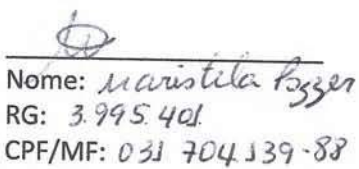 Nome: Maristela Pozzer
RG: 3.995.401
CPF/MF: 031 704 139-88